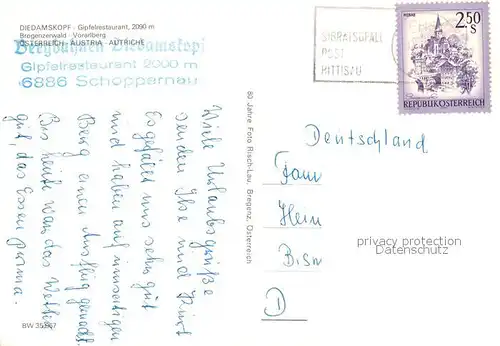 DIEDAMSKOPF - Gipfelrestaurant, 2090 m
Bregenzerwald · Vorarlberg
ÖSTERREICH - AUSTRIA - AUTRICHE
Bergbahnen Diedamskopf
Gipfelrestaurant 2000 m
6886 Schoppernau
Viele Urlaubsgrüße
senden Ilse und Kurt
Es gefällt uns sehr gut
und haben auf unserigen
Berg einen Ausflug gemacht.
Bis heute war das Wetter
gut, das Essen prima.
BW 35/567
80 Jahre Foto Risch-Lau, Bregenz, Österreich
SIBRATSGFÄLL
POST
HITTISAU
MURAU
2.50
S
REPUBLIK ÖSTERREICH
Deutschland
Fam
Hein
Bism
D
privacy protection
Datenschutz